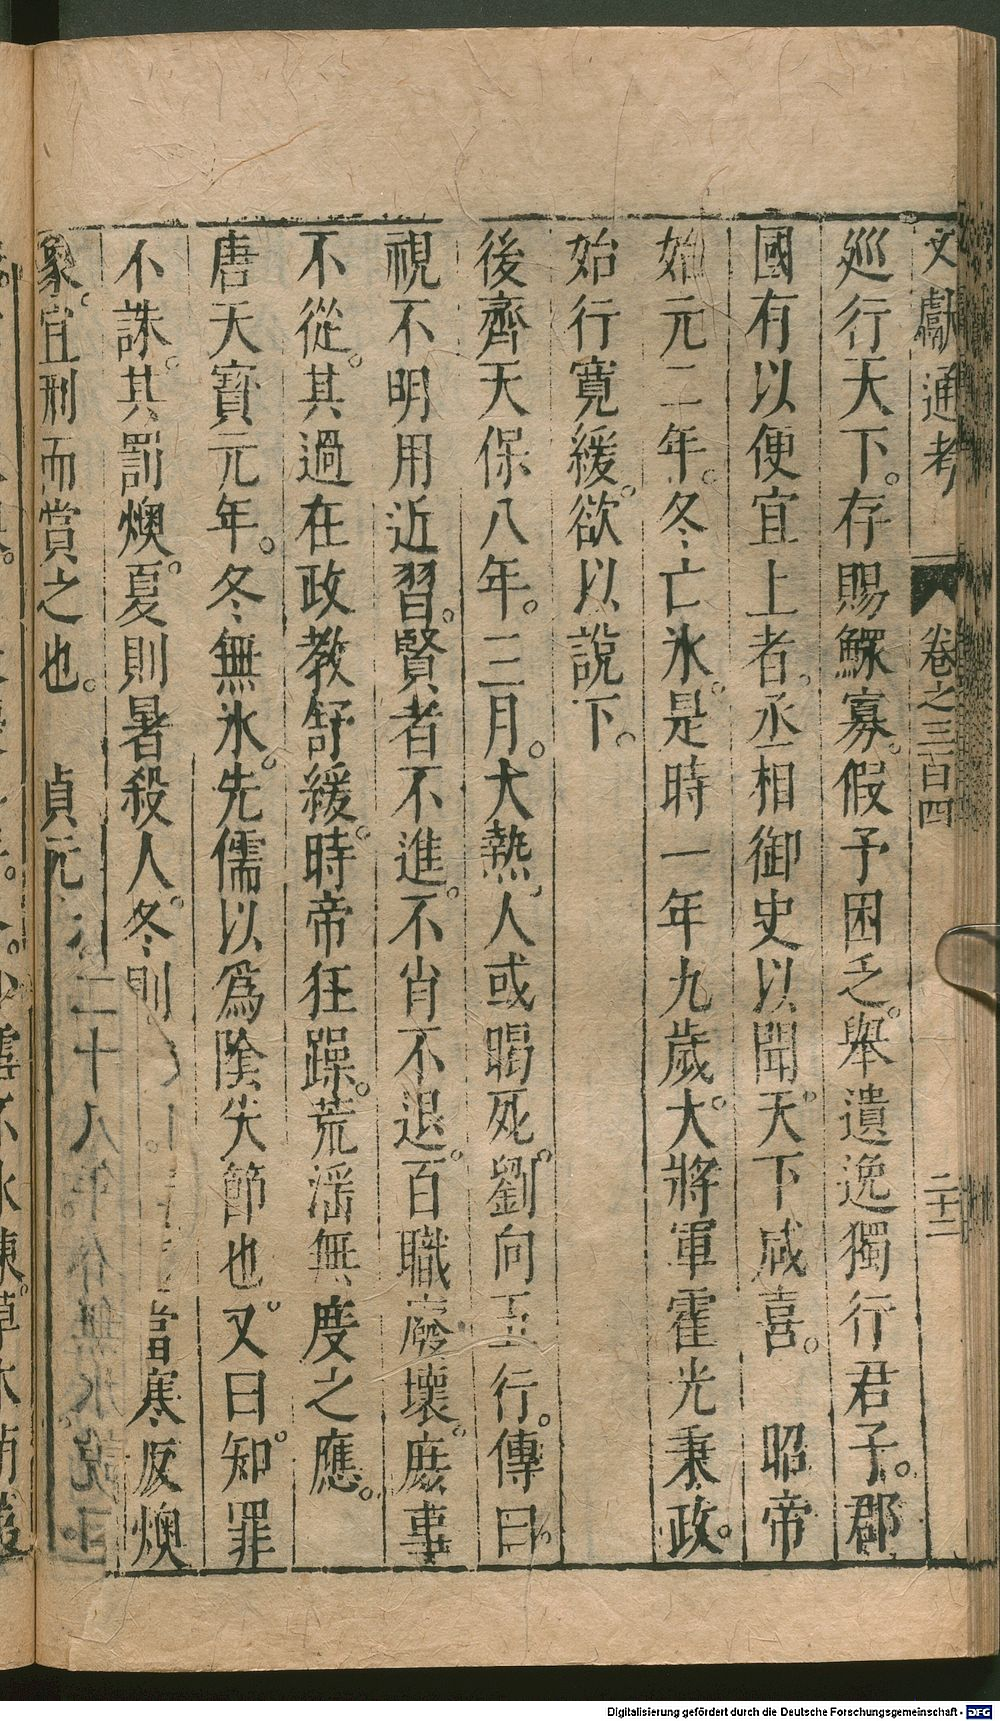 文獻通考 卷之三百四 二十二
巡行天下。存賜鰥寡。假予困乏。舉遺逸獨行君子。郡
國有以便宜上者。丞相御史以聞。天下咸喜。 昭帝
始元二年。冬亡氷。是時一年九歲。大將軍霍光秉政。
始行寬緩。欲以說下。
後齊天保八年。三月。大熱。人或暍死。劉向五行。傳曰。
視不明用近習。賢者不進。不肖不退。百職廢壞。庶事
不從。其過在政教舒緩。時帝狂躁。荒淫無度之應。
唐天寶元年。冬無氷。先儒以爲陰失節也。又曰。知罪
不誅。其罰燠。夏則暑殺人。冬則 當寒反燠
象。宜刑而賞之也。 貞元
二十八年
Digitalisierung gefördert durch die Deutsche Forschungsgemeinschaft - DFG